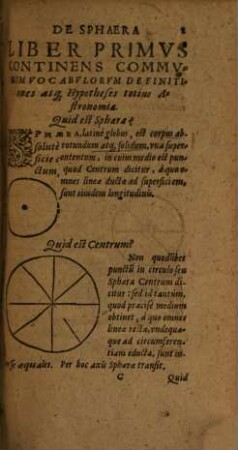 DE SPHAERA
LIBER PRIMVS
CONTINENS COMMV
NIVM VOCABVLORVM DEFINITI
ones atq; Hypotheses totius A
stronomiæ.
Quid est Sphæra?
SPHÆRA, latinè globus, est corpus ab-
solutè rotundum atq; solidum, vna super-
ficie contentum, in cuius medio est pun-
ctum, quod Centrum dicitur, à quo o-
mnes lineæ ductæ ad superficiem,
sunt eiusdem longitudinis.
Quid est Centrum?
Non quodlibet
punctũ in circulo seu
Sphæra Centrum di-
citur: sed id tantùm,
quod præcisè medium
obtinet, à quo omnes
lineæ rectæ, vndequa-
que ad circumferen-
tiam eductæ, sunt in-
ter se æquales. Per hoc axis Sphæræ transit.
C Quid